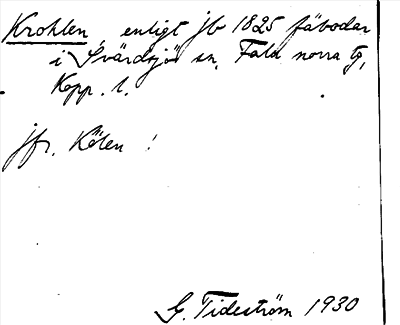 Krohlen, enligt jb 1825 fäbodar
i Svärdsjö sn, Falu norra tg,
Kopp. l.
jfr. Kölen !
G. Tideström 1930